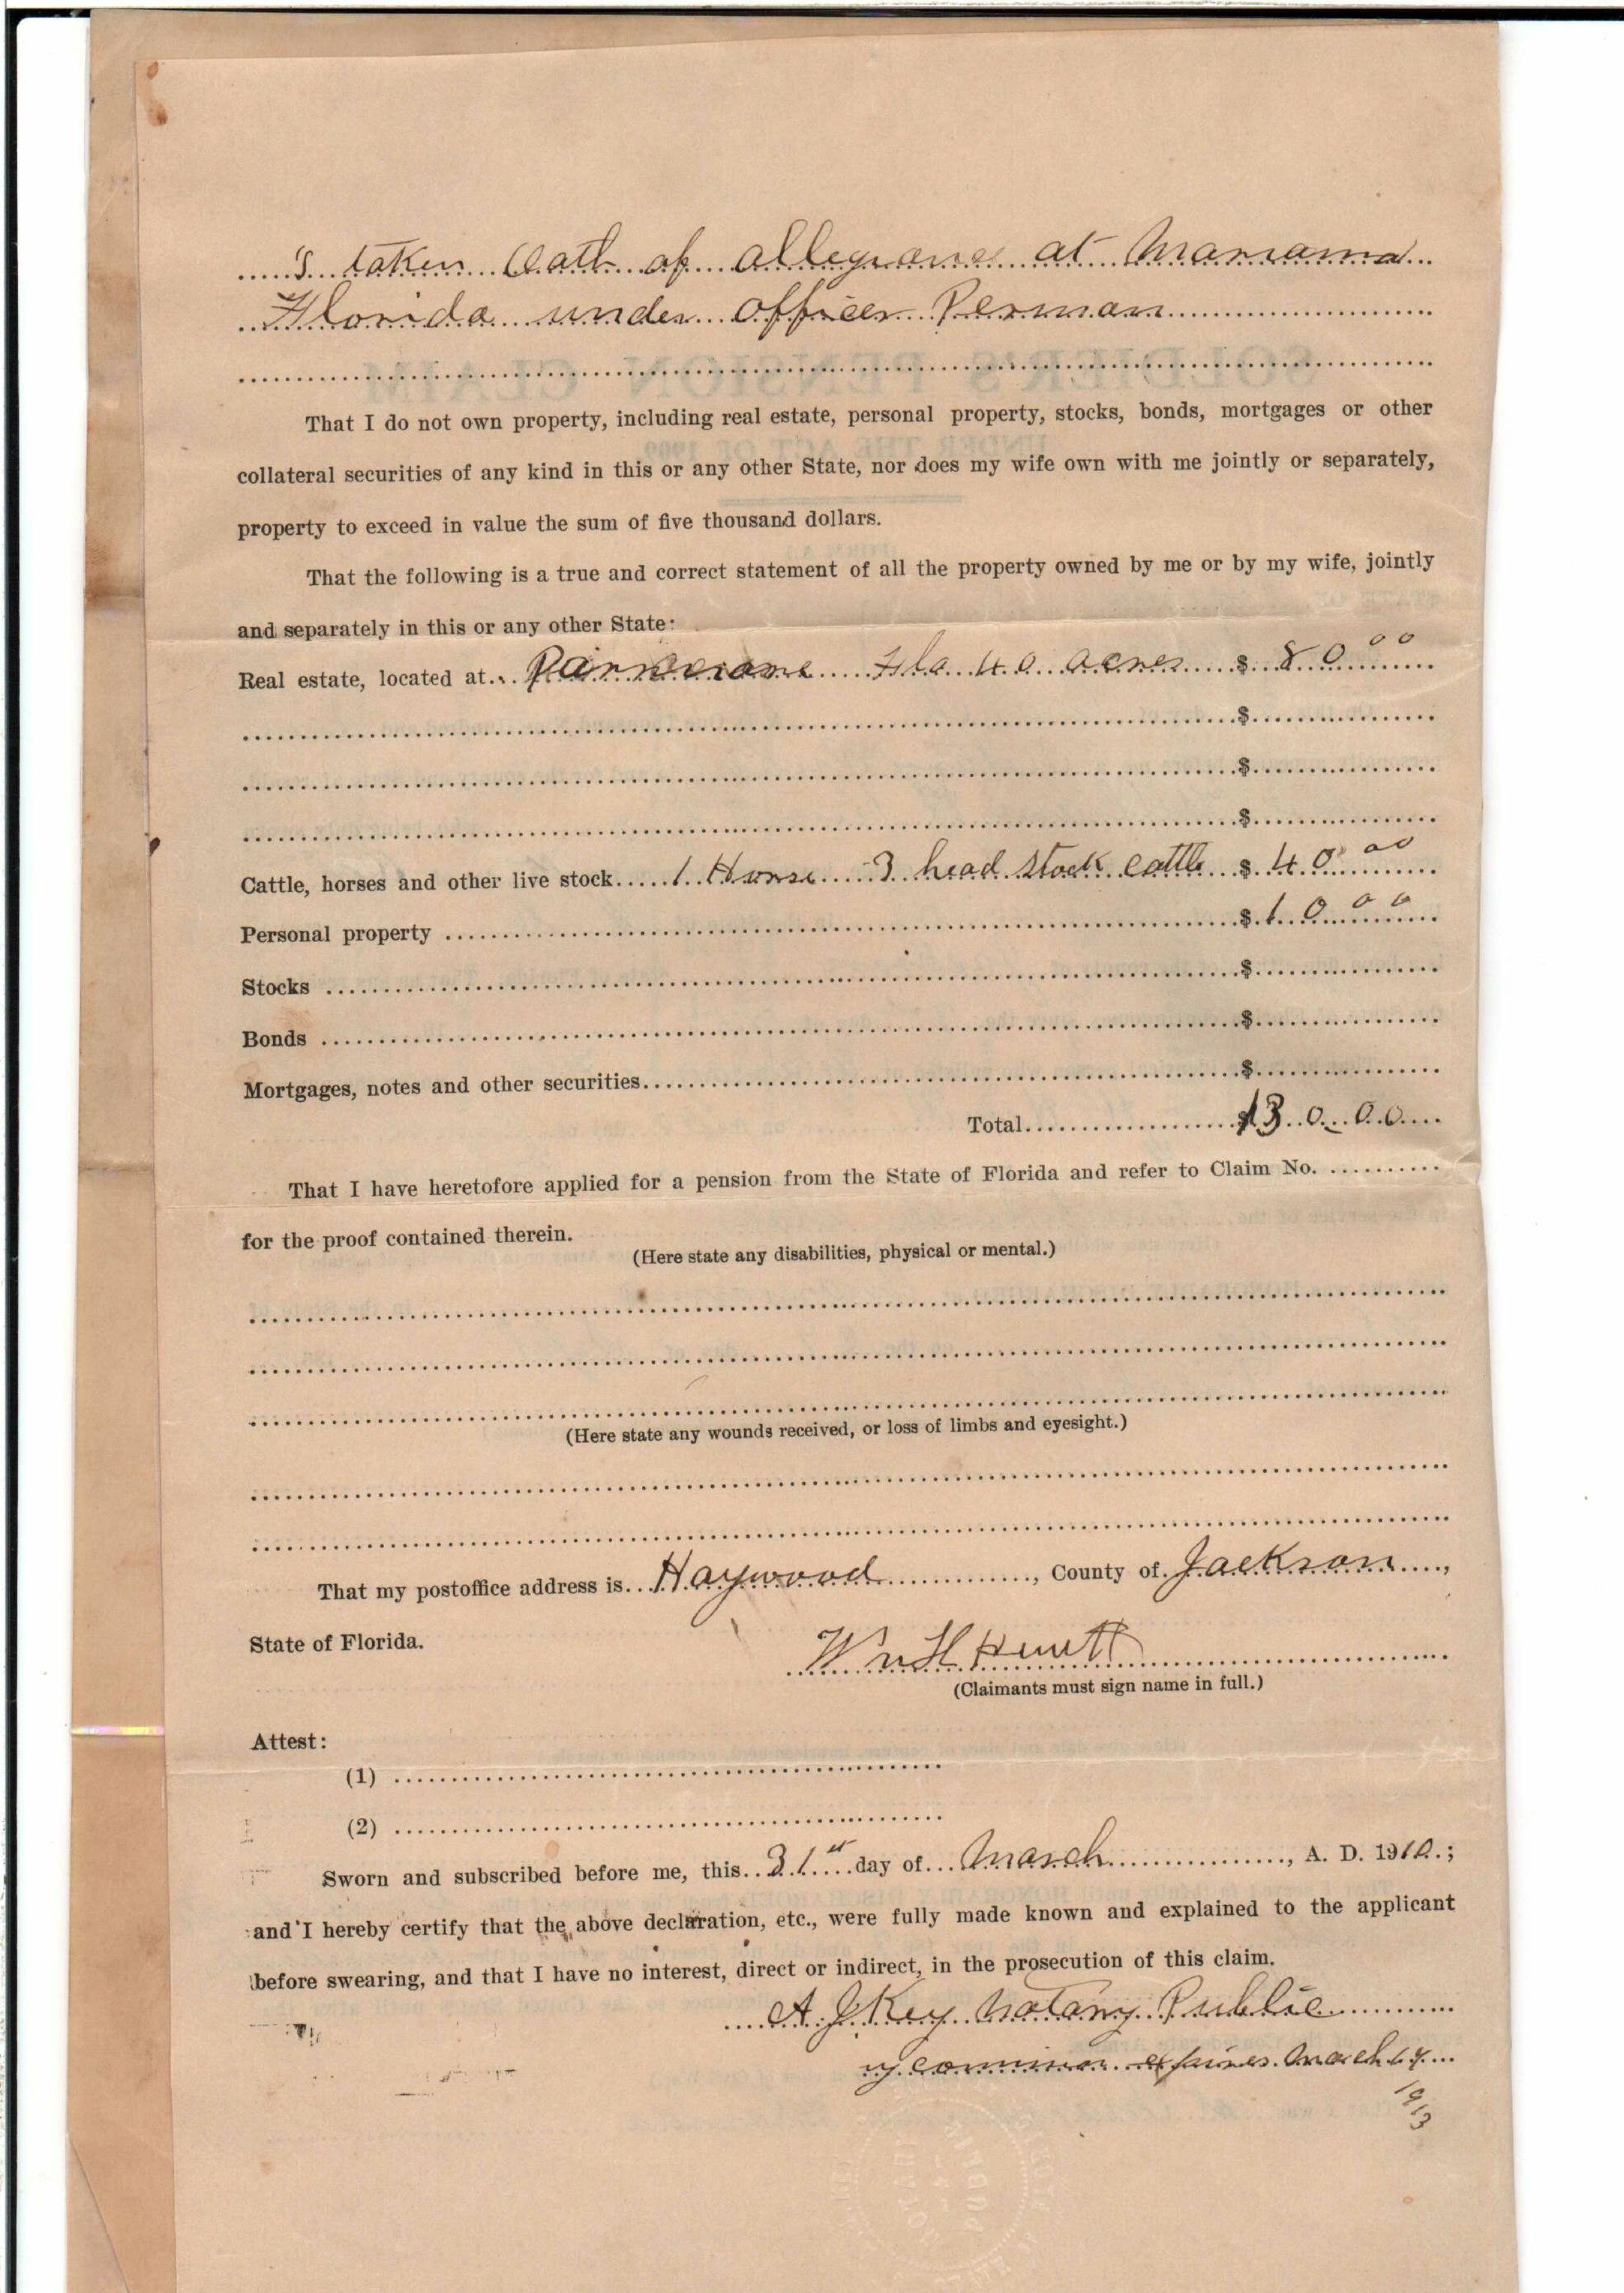 taken Oath of allegiance at Marianna
Florida under officer Perman
SOLDIER'S PENSION CLAIM
UNDER THE ACT OF 1909
That I do not own property, including real estate, personal property, stocks, bonds, mortgages or other
collateral securities of any kind in this or any other State, nor does my wife own with me jointly or separately,
property to exceed in value the sum of five thousand dollars.
That the following is a true and correct statement of all the property owned by me or by my wife, jointly
and separately in this or any other State:
Real estate, located at Fla 40 acres $ 80 00
$
$
$
Cattle, horses and other live stock 1 Horse 3 head stock cattle $ 40 00
Personal property $ 10 00
Stocks $
Bonds $
Mortgages, notes and other securities $
Total $130.00
That I have heretofore applied for a pension from the State of Florida and refer to Claim No.
for the proof contained therein.
(Here state any disabilities, physical or mental.)
(Here state any wounds received, or loss of limbs and eyesight.)
That my postoffice address is Haywood, County of Jackson,
State of Florida.
Wm H Hewett
(Claimants must sign name in full.)
Attest:
(1)
(2)
Sworn and subscribed before me, this 31st day of March, A. D. 1910.;
and I hereby certify that the above declaration, etc., were fully made known and explained to the applicant
before swearing, and that I have no interest, direct or indirect, in the prosecution of this claim.
A J Key Notary Public
my commission expires March 14
1913